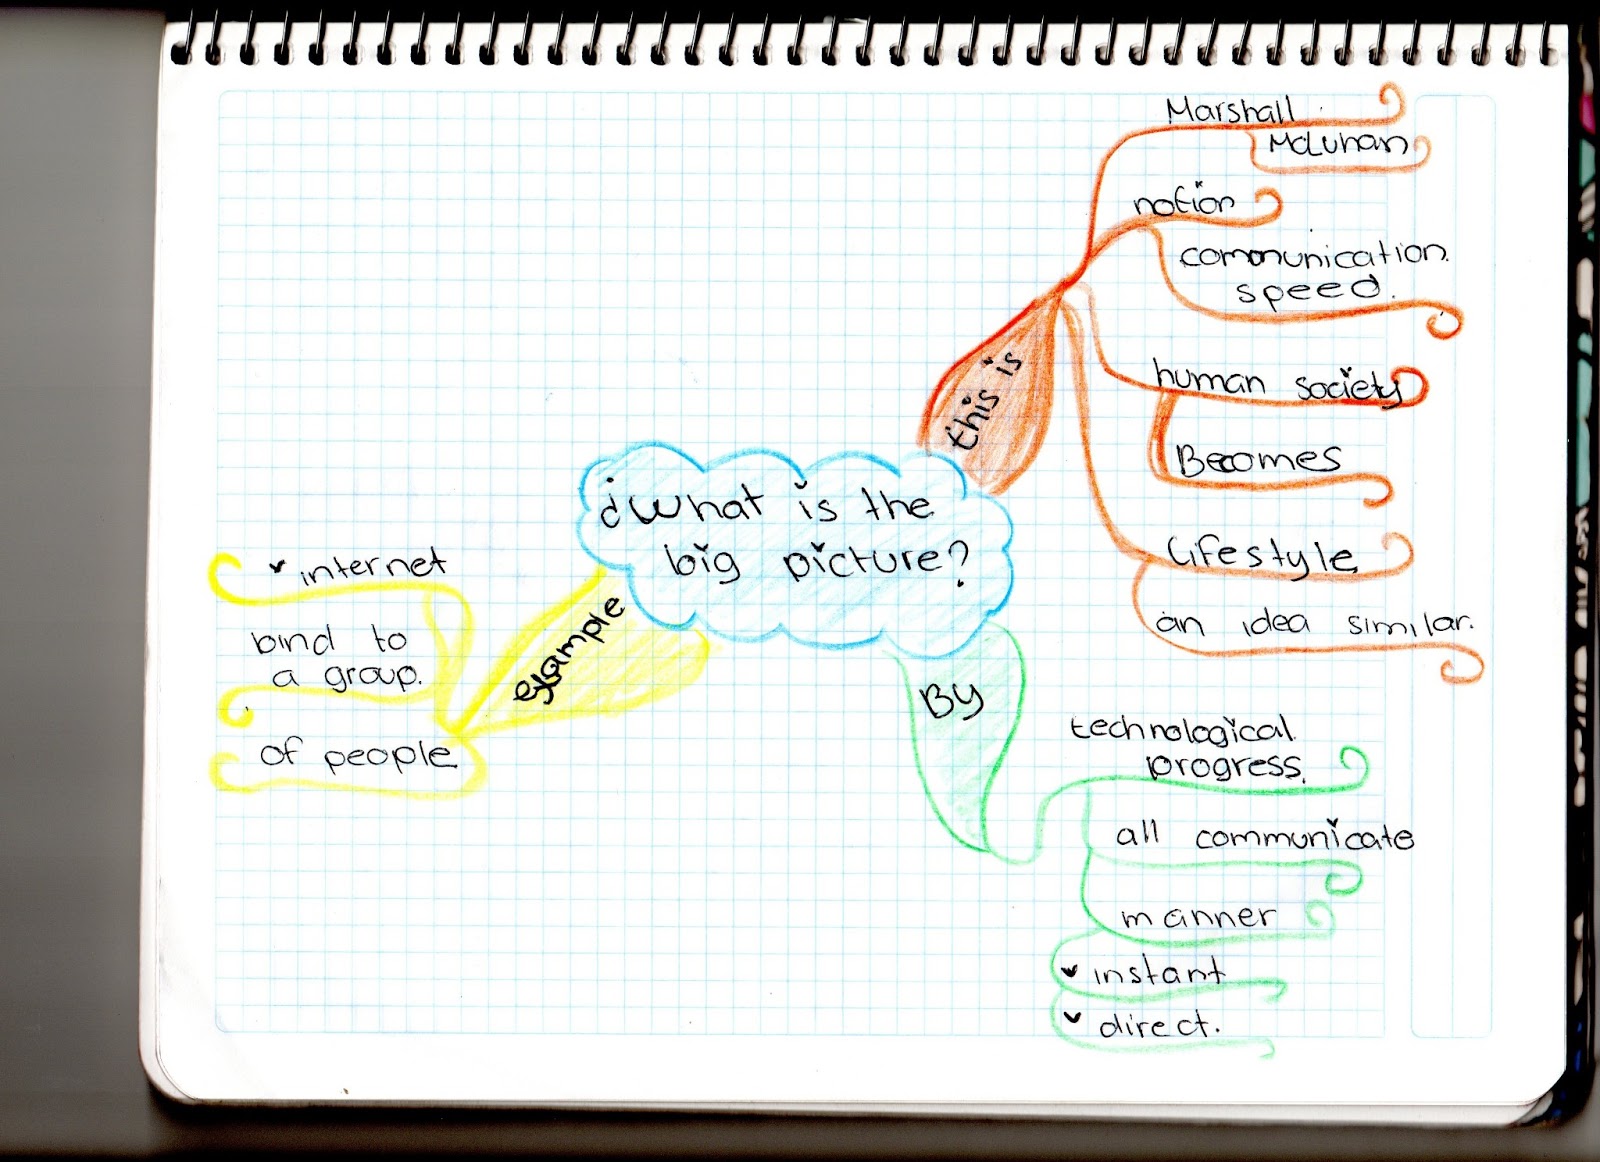 ¿What is the
big picture?
this is
Marshall
McLuhan
notion
communication.
speed.
human society
Becomes
Lifestyle
an idea similar.
By
technological.
progress.
all communicate
manner
instant
direct.
example
internet
bind to
a group.
of people